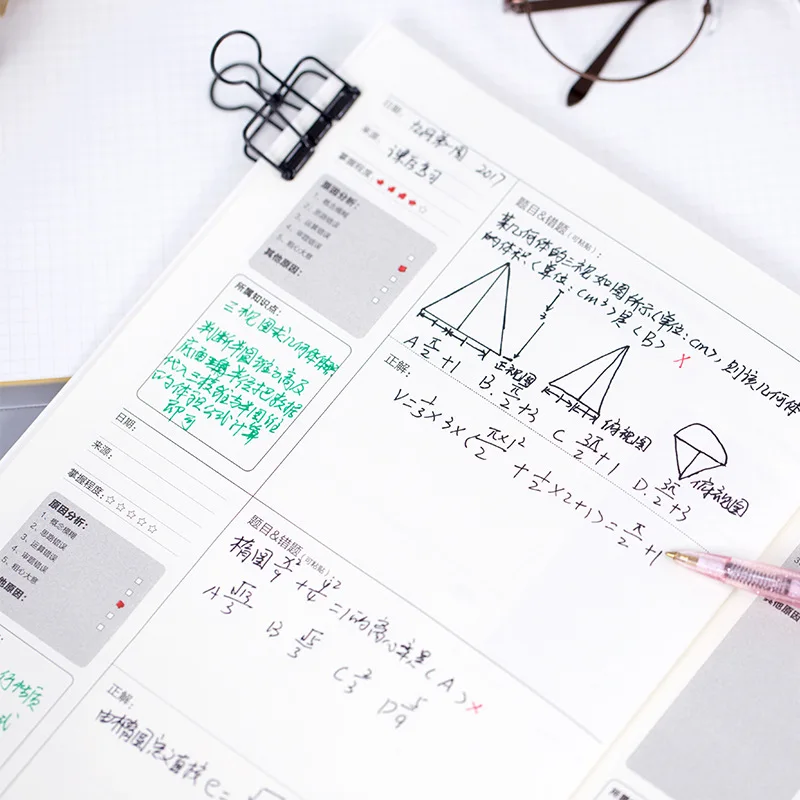 日期:
九月第一周 2017
来源:
课后练习
掌握程度:
原因分析:
1、概念模糊
2、思路错误
3、运算错误
4、审题错误
5、粗心大意
其他原因:
所属知识点:
三视图求几何体体积
判断作图锥的高及
底面
半径把数据
代入三棱锥与半圆组
的体积公式计算
即可
题目&错题(可粘贴):
某几何体的三视如图所示(单位:cm),则该几何体
的体积(单位:cm³)是(B) ×
3
正视图
俯视图
俯视图
A π/2+1
B. π/2+3
C 3π/2+1
D. 3π/2+3
正解:
V=1/3×3×(π×1²/2+1/2×2×1)=π/2+1
日期:
来源:
掌握程度:☆☆☆☆☆
原因分析:
1、概念模糊
2、思路错误
3、运算错误
4、审题错误
5、粗心大意
其他原因:
题目&错题(可粘贴):
椭圆x²/9+y²/4=1的离心率是(A) ×
A √13/3
B √5/3
C 2/3
D 5/9
正解:
由椭圆定义直接e=
行性质
式
其他原因
所属知识点: